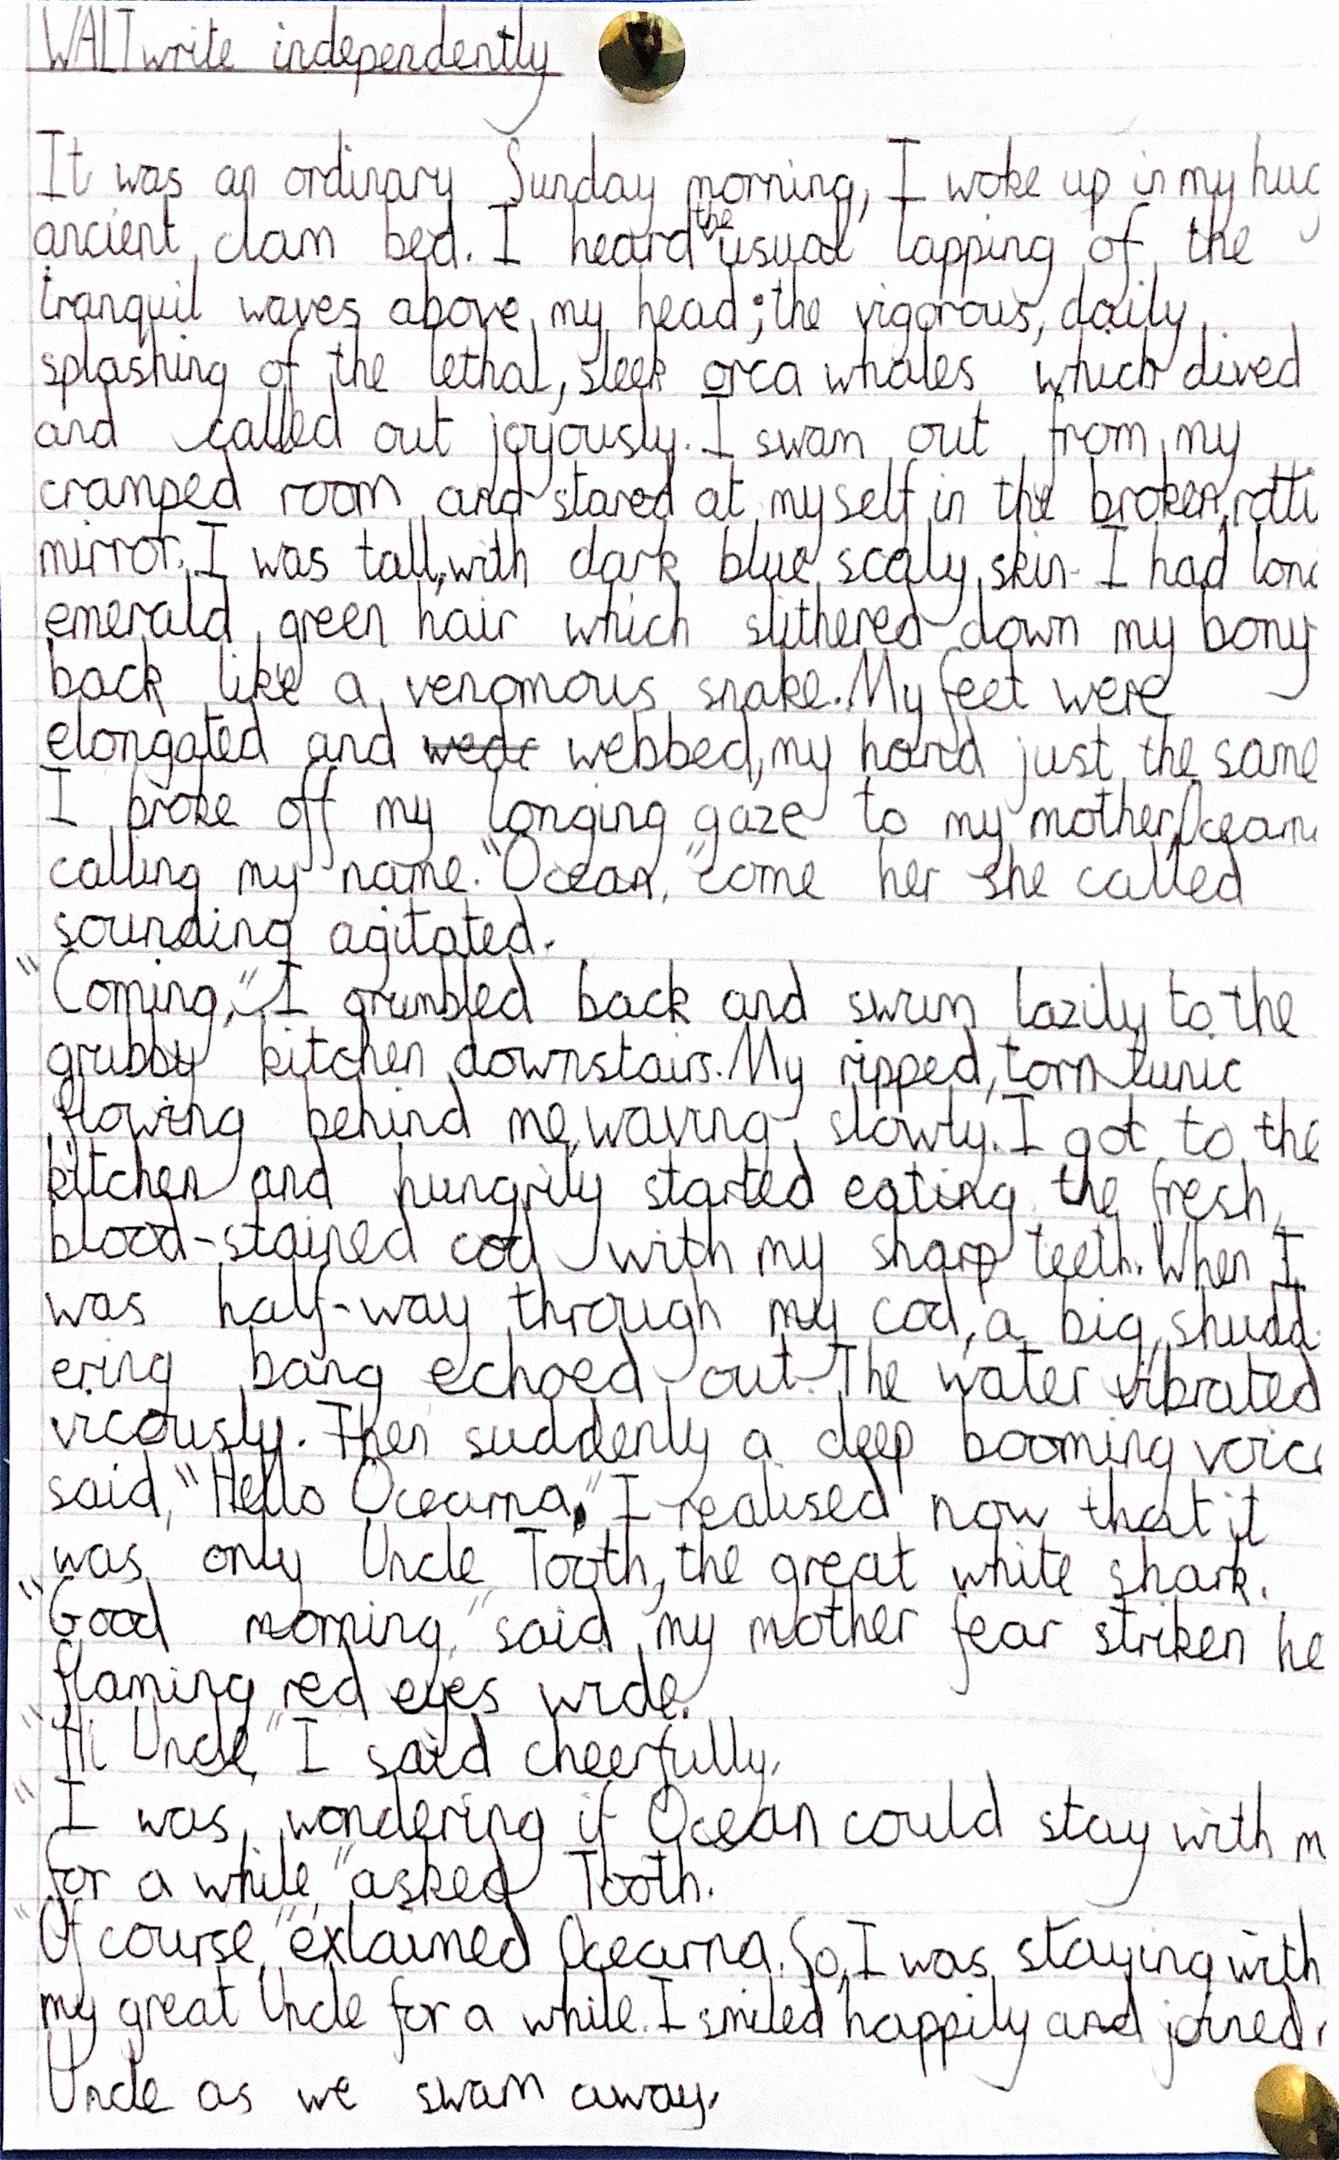 WALT write independently
It was an ordinary Sunday morning, I woke up in my hug
ancient clam bed. I heard the usual lapping of the
tranquil waves above my head; the vigorous, daily
splashing of the lethal, sleek orca whales which dived
and called out joyously. I swam out from my
cramped room and stared at myself in the broken, rotti
mirror. I was tall, with dark blue scaly skin. I had lon
emerald green hair which slithered down my bony
back like a venomous snake. My feet were
elongated and webbed, my hand just the same
I broke off my longing gaze to my mother, Ocearn
calling my name. "Ocean," "come her she called
sounding agitated.
"Coming," I grumbled back and swum lazily to the
grubby kitchen downstairs. My ripped, torn tunic
flowing behind me, waving slowly. I got to the
kitchen and hungrily started eating the fresh,
blood-stained cod with my sharp teeth. When I
was half-way through my cod, a big, shudd
ering bang echoed out. The water vibrated
vicously. Then suddenly a deep booming voic
said, "Hello Ocearna." I realised now that it
was only Uncle Tooth, the great white shark.
"Good morning," said my mother fear striken he
flaming red eyes wide.
"Hi Uncle," I said cheerfully.
"I was wondering if Ocean could stay with m
for a while," asked Tooth.
"Of course," exlaimed Ocearna. So, I was staying with
my great Uncle for a while. I smiled happily and joined
Uncle as we swam away.